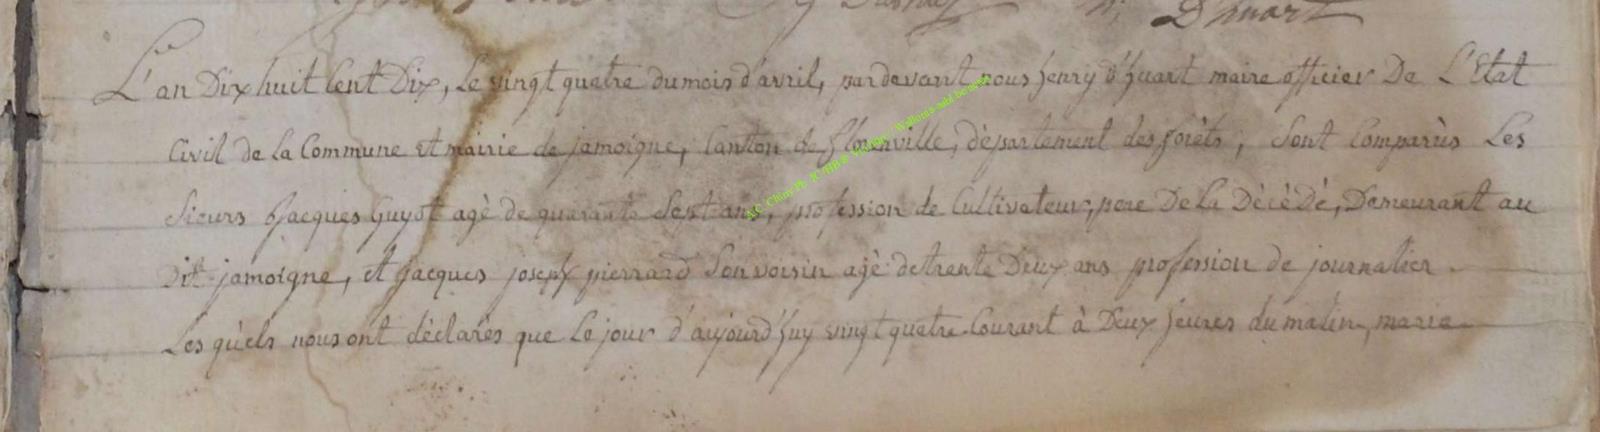 Dhuart
L'an Dix huit Cent Dix, Le vingt quatre du mois d'avril, pardevant nous henry d'huart maire officier De L'Etat
Civil de la Commune Et mairie de jamoigne, Canton de florenville, département des forèts, Sont Comparùs Les
Sieurs Jacques Guyot agè de quarante Sept ans, profession de Cultivateur, pere De La Dècèdè, Demeurant au
Dit jamoigne, et jacques joseph pierrard Son voisin agè de trente Deux ans profession de journalier
Les quels nous ont dèclarès que Le jour d'aujourd'huy vingt quatre Courant à Deux heures du matin, marie